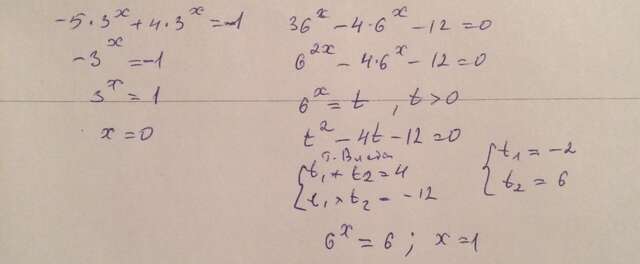 -5·3^x+4·3^x=-1
-3^x=-1
3^x=1
x=0
36^x-4·6^x-12=0
6^2x-4·6^x-12=0
6^x=t, t>0
t^2-4t-12=0
т. Виета
{t1+t2=4
t1×t2=-12
{t1=-2
t2=6
6^x=6; x=1